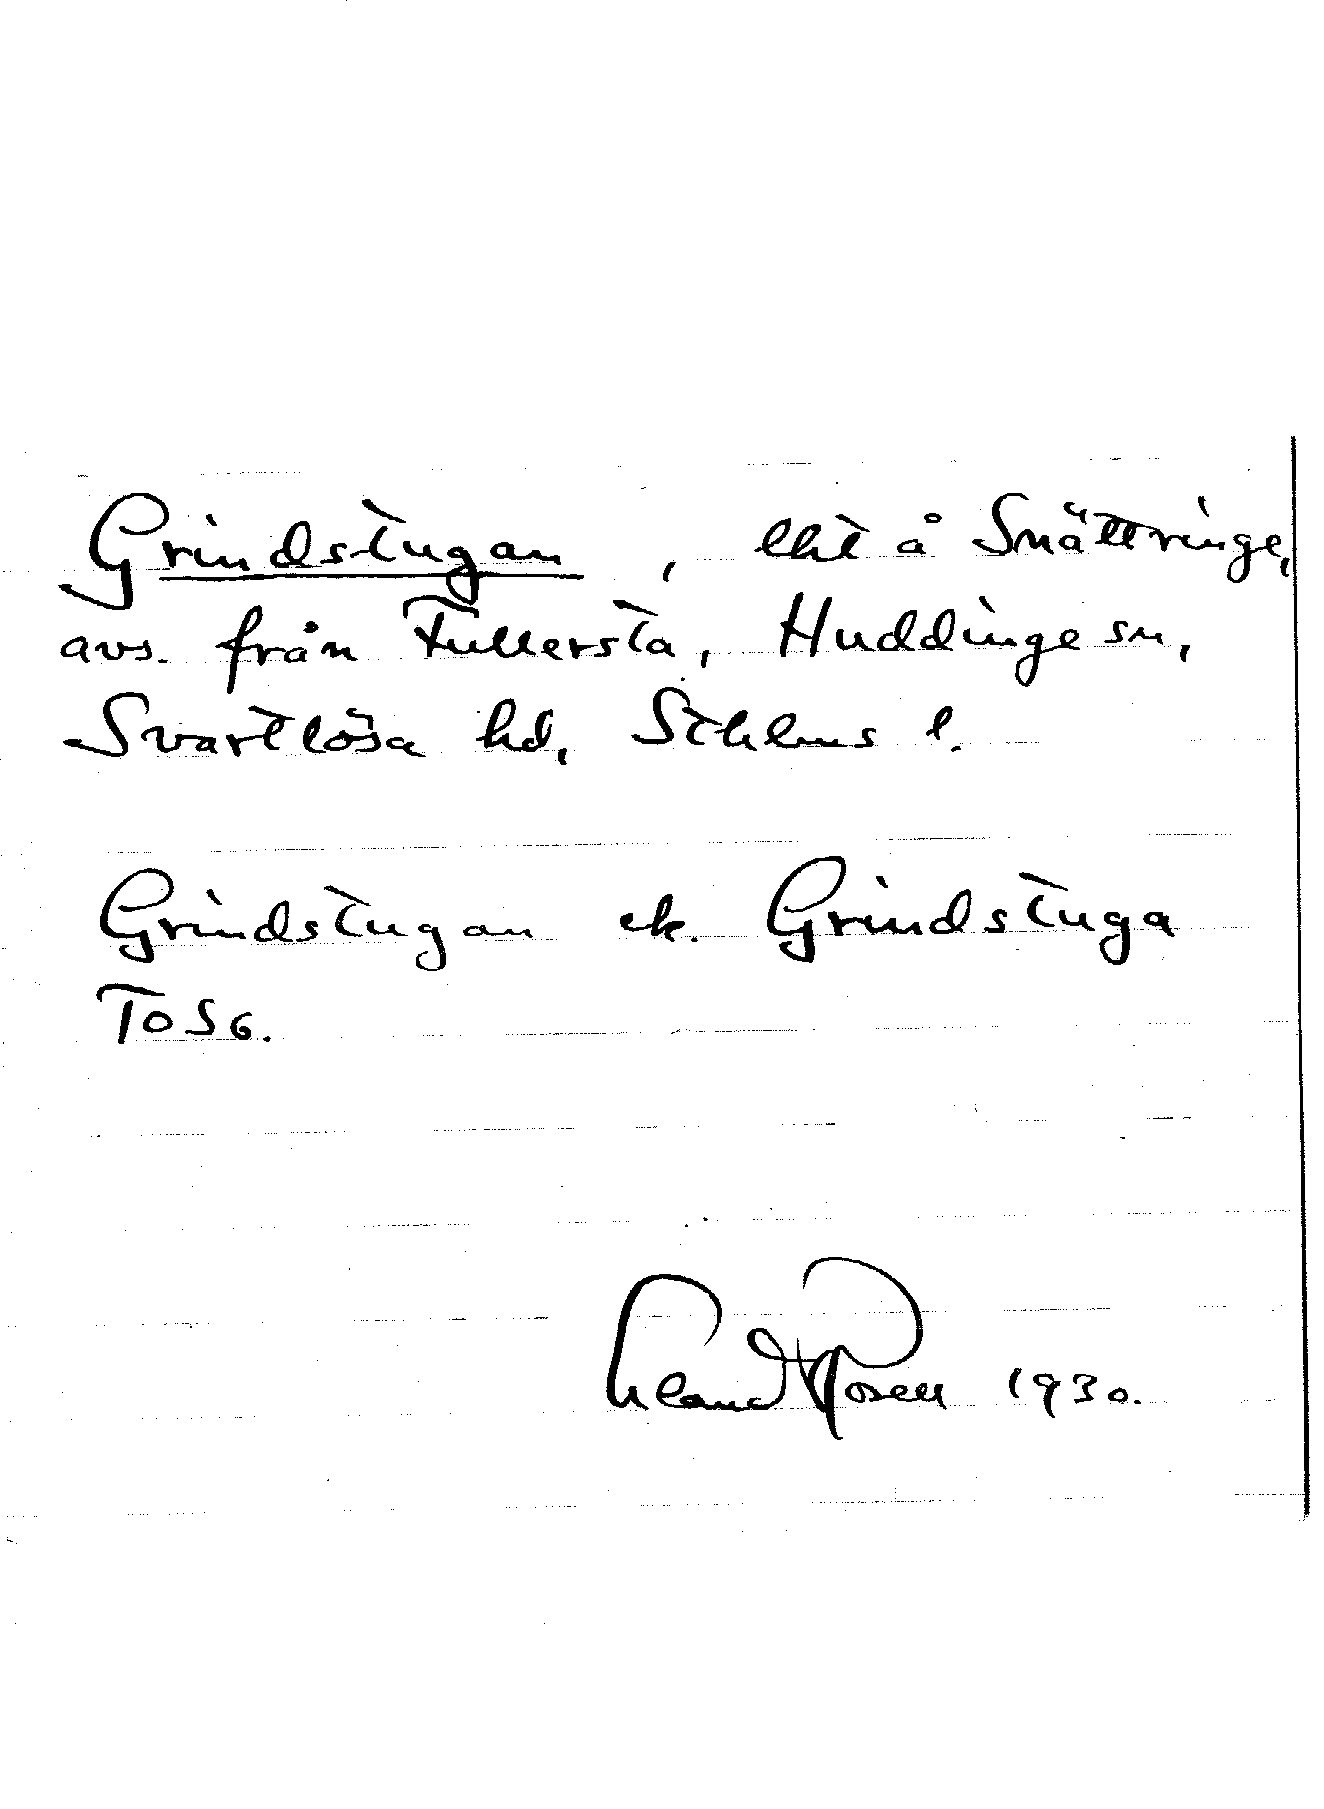 Grindstugan, lht å Snättringe,
avs. från Fullersta, Huddinge sn,
Svartlösa hd, Sthlms l.
Grindstugan ek. Grindstuga
To S6.
Rosell 1930.